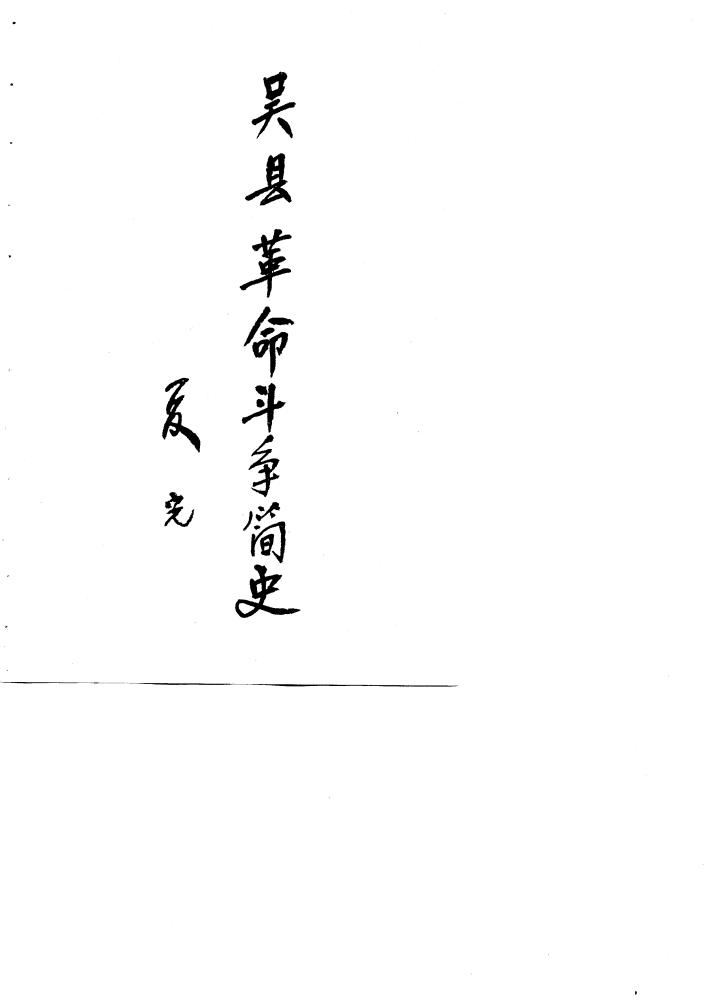 吴县革命斗争简史
夏完